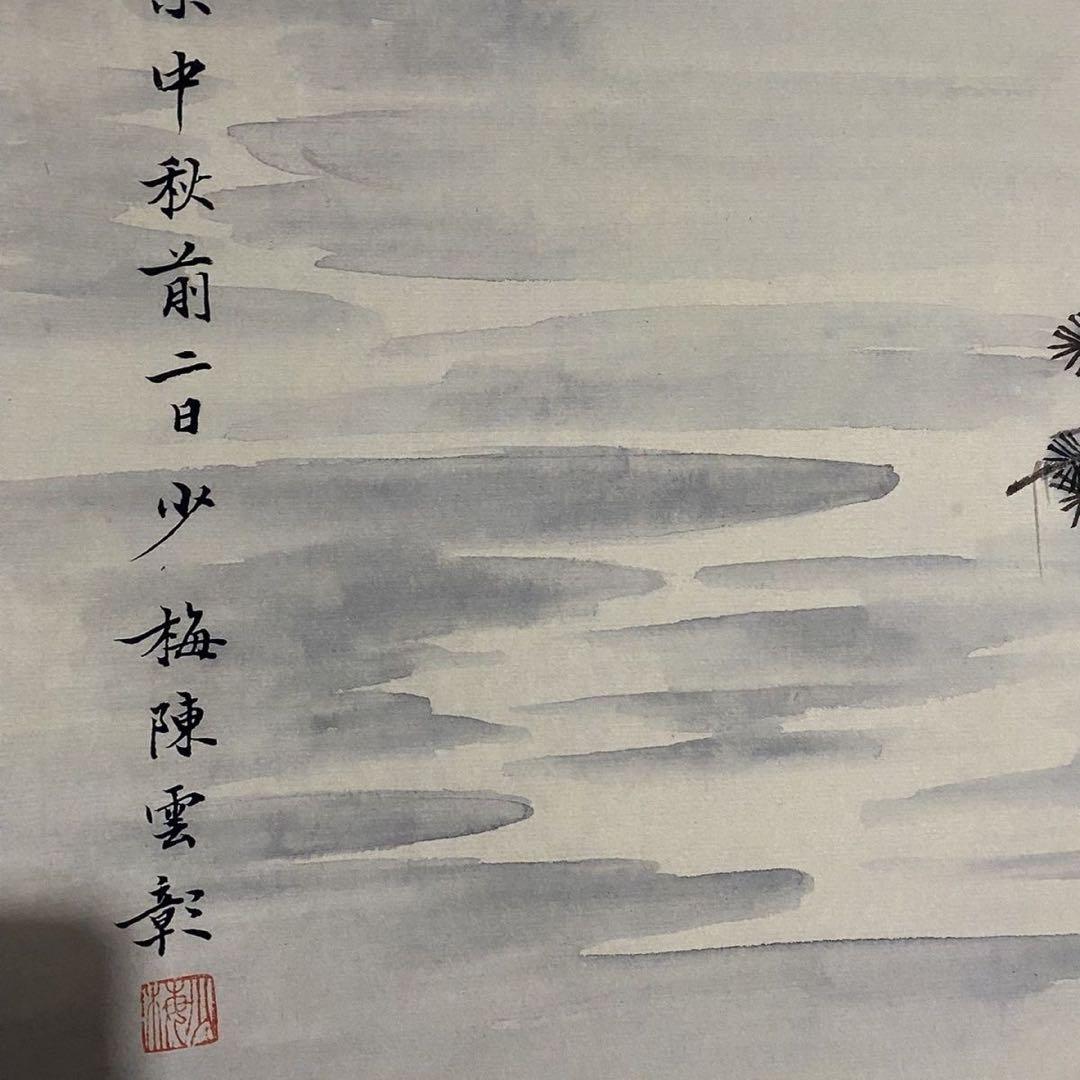 中秋前二日少梅陳雲彰
少梅